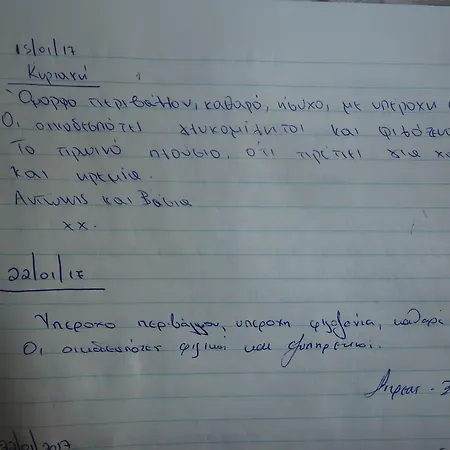 15/01/17
Κυριακή
Όμορφο περιβάλλον, καθαρό, ήσυχο, με υπέροχη
Οι οικοδεσπότες γλυκομίλητοι και
Το πρωινό πλούσιο, ότι πρέπει για
και ηρεμία.
Αντώνης και Βάσια
xx.
22/01/17
Υπέροχο περιβάλλον, υπέροχη φιλοξενία,
Οι οικοδεσπότες φιλικοί και εξυπηρετικοί.
22/01/2017